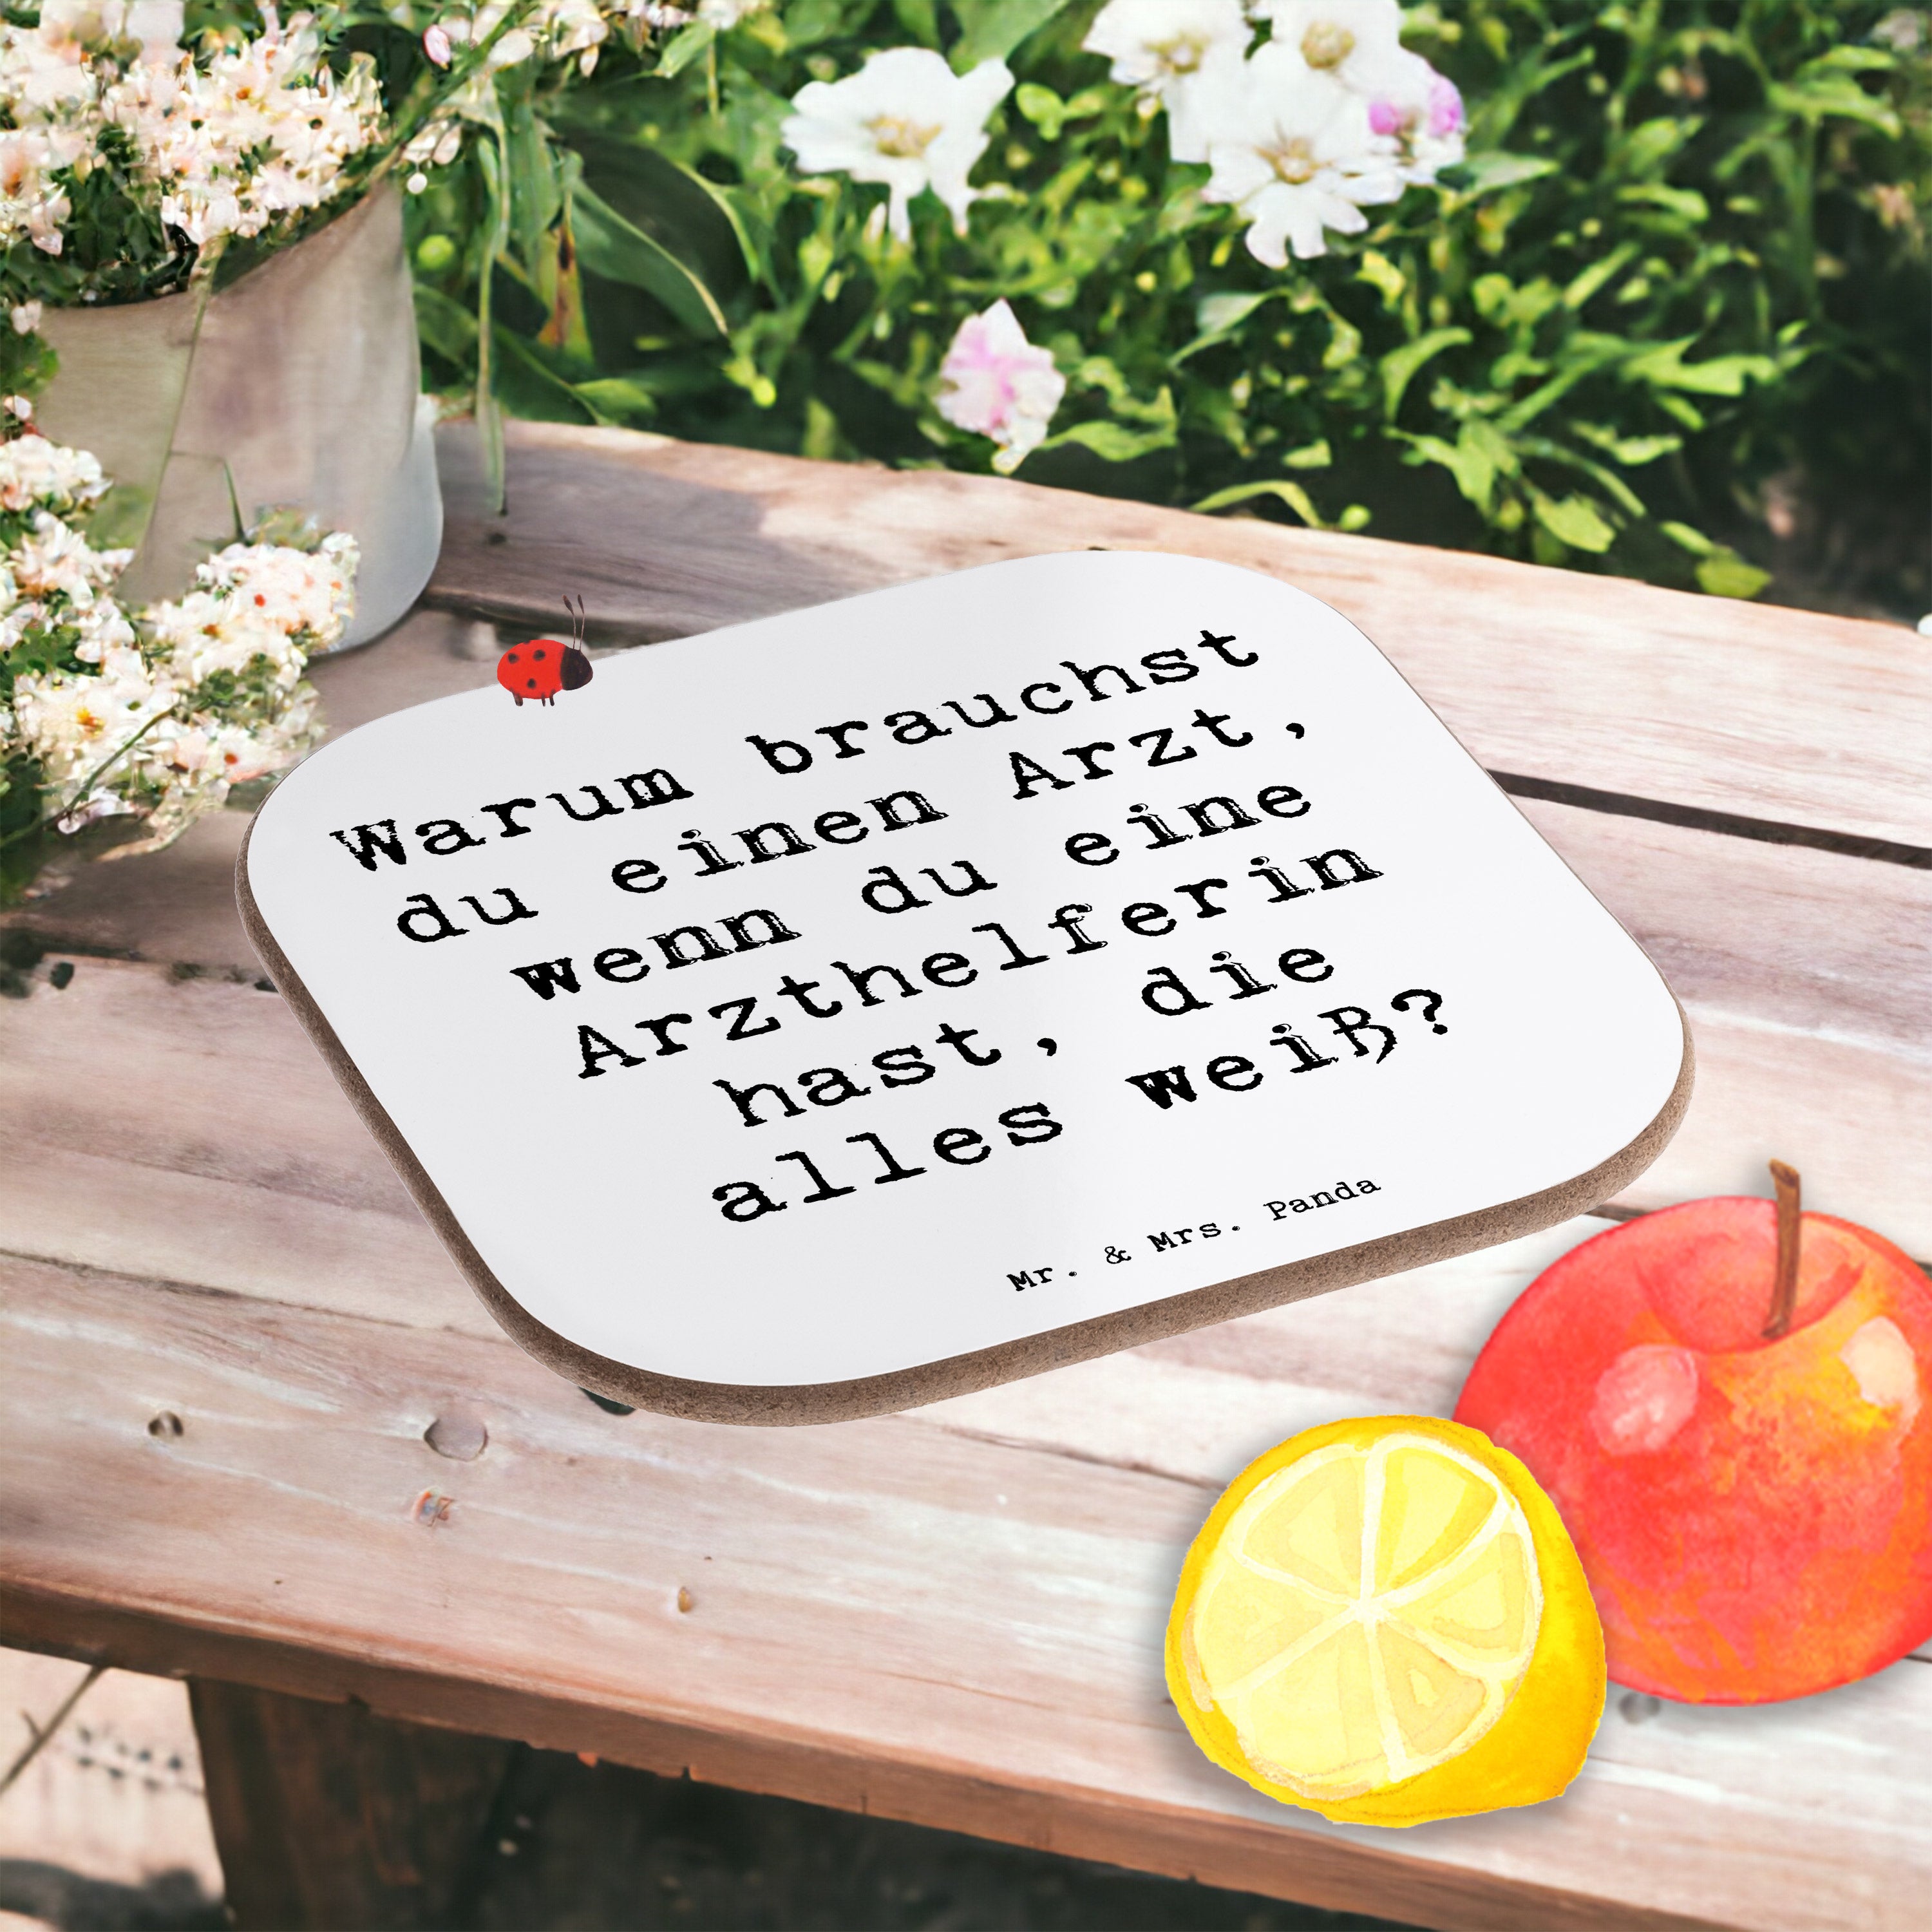 Warum brauchst
du einen Arzt,
wenn du eine
Arzthelferin
hast, die
alles weiß?
Mr. & Mrs. Panda